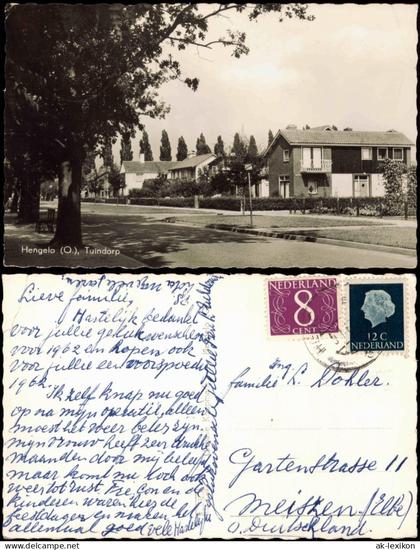 Hengelo (O.), Tuindorp
Lieve families,
Hartelijk bedankt
voor jullie gelukwenschen
voor 1962 en hopen ook
voor jullie een voorspoedig
1962.
Ik zelf knap nu goed
op na mijn operatie, alleen
moest het weer beter zijn
mijn vrouw heeft zeer drukke
maanden door mij beleefd
maar komt nu toch ook
weer tot rust. De zoon en de
kinderen waren hier de
feestdagen en maken het
allemaal goed vele Hartelijke
NEDERLAND
8
CENT
12 C
NEDERLAND
Ing. L. Dohler.
familie
Gartenstrasse 11
Meiszen (Elbe)
O. Duitschland.
© www.ak-lexikon.de